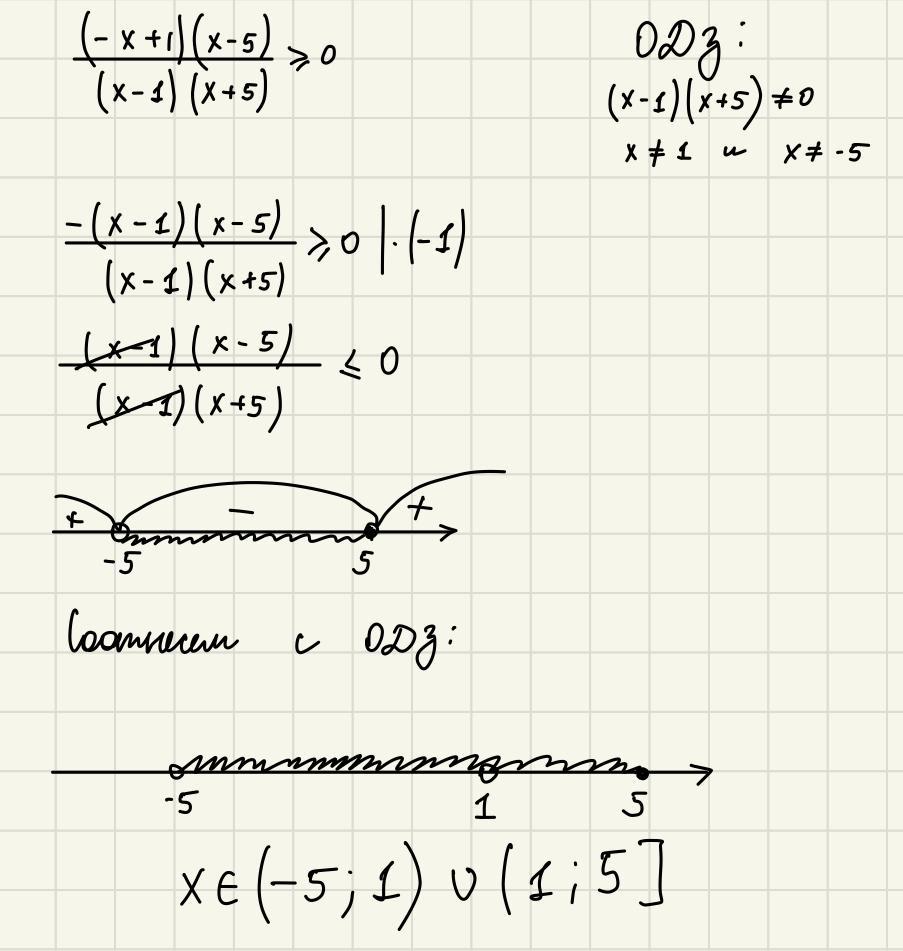 (-x+1)(x-5)/(x-1)(x+5) ⩾ 0
ОДЗ:
(x-1)(x+5) ≠ 0
x ≠ 1 и x ≠ -5
-(x-1)(x-5)/(x-1)(x+5) ⩾ 0 | · (-1)
(x-1)(x-5)/(x-1)(x+5) ⩽ 0
+ - +
-5 5
Соотнесем с ОДЗ:
-5 1 5
x ∈ (-5; 1) ∪ (1; 5]